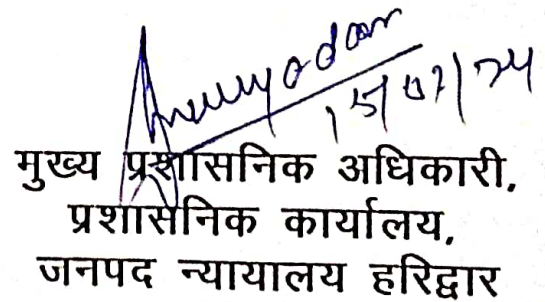 15/07/24
मुख्य प्रशासनिक अधिकारी,
प्रशासनिक कार्यालय,
जनपद न्यायालय हरिद्वार